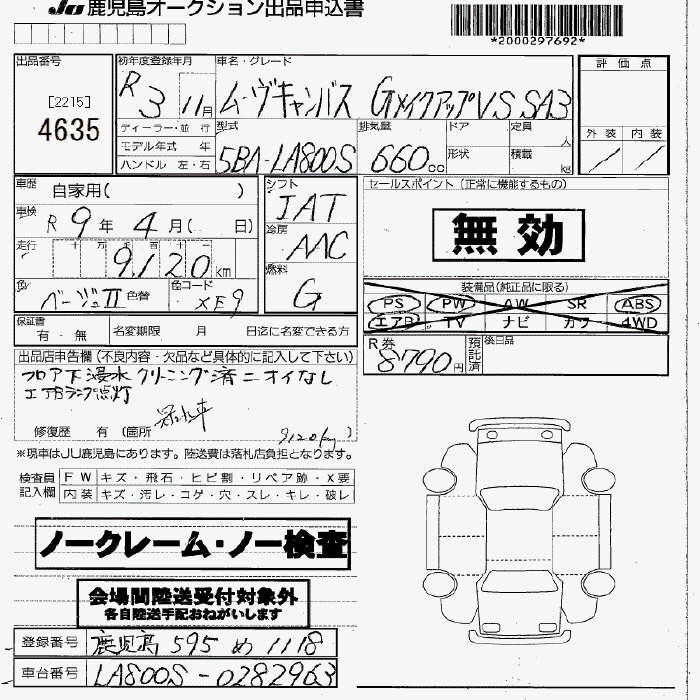 JU 鹿児島オークション出品申込書
*2000297692*
出品番号
[2215]
4635
初年度登録年月
R3 11月
車名・グレード
ムーヴキャンバス GメイクアップVS SA3
評価点
外装 内装
ディーラー・並行
モデル年式 年
ハンドル 左・右
型式
5BA-LA800S
排気量
660cc
ドア
形状
定員
人
積載
kg
車歴 自家用( )
車検 R 9年 4月( 日)
走行 十 万 千 百 十
9120km
色 ベージュII 色替
色コード
XF9
シフト
JAT
冷房
AAC
燃料
G
セールスポイント (正常に機能するもの)
無効
装備品(純正品に限る)
PS PW AW SR ABS
エアB TV ナビ カワ 4WD
保証書
有・無
名変期限 月 日迄に名変できる方
R券
8790円
預託済
後日品
出品店申告欄(不良内容・欠品など具体的に記入して下さい)
フロア下浸水クリーニング済ニオイなし
エアBランプ点灯
冠水車
修復歴 有 (箇所 9120km)
※現車はJU鹿児島にあります。陸送費は落札店負担となります。
検査員記入欄
FW キズ・飛石・ヒビ割・リペア跡・X要
内装 キズ・汚レ・コゲ・穴・スレ・キレ・破レ
ノークレーム・ノー検査
会場間陸送受付対象外
各自陸送手配おねがいします
登録番号 鹿児島 595 め 1118
車台番号 LA800S-0282963